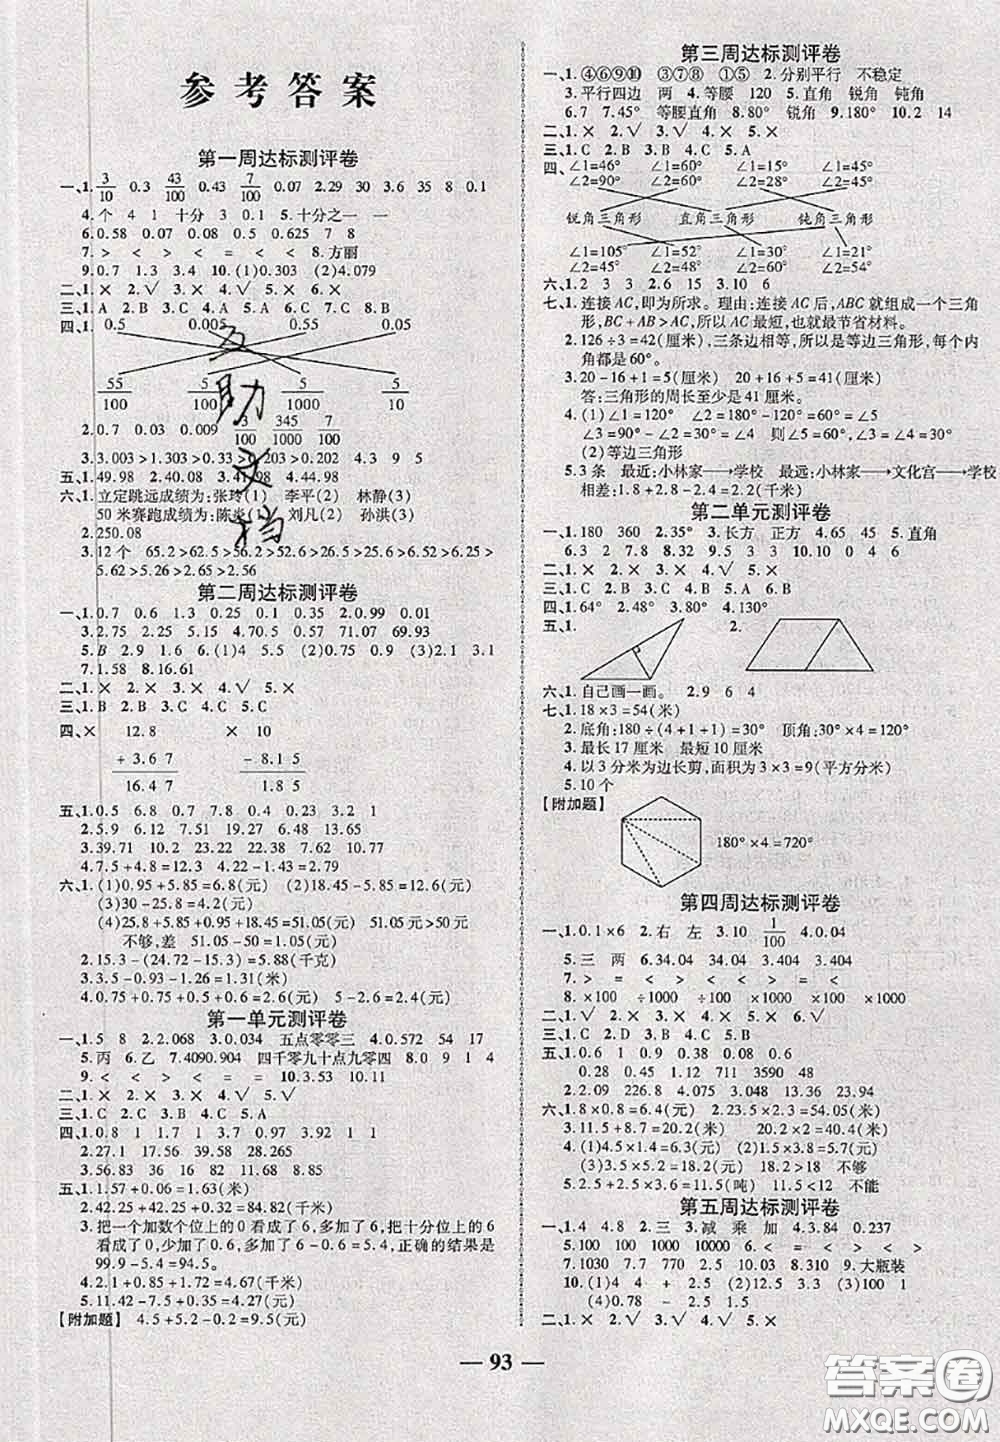 参考答案
第一周达标测评卷
一、1. 3/10 0.3 43/100 0.43 7/100 0.07 2.29 30 3.46 35 8 0.1
4.个 4 1 十分 3 0.1 5.十分之一 一
6.0.58 0.07 0.08 0.625 8.0
7.> < < = < < 8.方丽
9.0.7 1.3 3.4 10.(1)0.303 (2)4.079
二、1.× 2.√ 3.× 4.× 5.×
三、1.A 2.B 3.C 4.A 5.B
四、1. 0.5 0.005 0.55 0.05
55/100 5/100 5/1000 5/10
2.0.7 0.03 0.009 3/100 345/1000 7/100
3.3.003>1.303>0.33>0.203>0.202 4.3 9 5
五、1.49.98 2.40.08 3.41.98 4.44.98
六、1.立定跳远成绩为:张玲(1) 李平(2) 林静(3)
50米赛跑成绩为:陈炎(1) 刘凡(2) 孙洪(3)
2.250.08
3.12个 65.2>62.5>56.2>52.6>26.5>25.6>6.52>6.25>
5.62>5.26>2.65>2.56
第二周达标测评卷
一、1.0.7 0.6 1.3 0.25 0.1 0.35 2.0.99 0.01
3.2.75 2.25 5.15 4.0.57 0.51 71.07 69.93
5.B 2.9 15.2 6.(1)4 (2)5.48 (3)2.1 3.1
7.1.58 8.16.61
二、1.× 2.× 3.× 4.√ 5.×
三、1.B 2.C 3.A 4.C 5.B
四、× 12.8 × 10
+ 3.67 - 8.15
16.47 1.85
五、1.0.5 6.8 0.7 0.4 0.23 3.2 1
2.5.9 6.12 7.51 19.27 6.48 13.65
3.39.71 10.2 23.38 19 7.65 10.7
4.7.5+4.8=12.3 4.22-1.43=2.79
六、1.(1)0.95+5.85=6.8(元) (2)18.45-5.85=12.6(元)
(3)30-25.8=4.2(元)
(4)25.8+5.85+0.95+18.45=51.05(元) 51.05元>50元
不够,差 51.05-50=1.05(元)
2.15.3-(24.72-15.3)=5.88(千克)
3.5.2-0.93-2.96=1.31(米)
4.0.75+0.75+0.5+0.6=2.6(元) 5-2.6=2.4(元)
第一单元测评卷
一、1.5 8 2.2.068 3.0.034 五点零零三 4.0.572 54 17
5.丙 6.乙 7.4090.904 四千零九十点九零四 8.0 9 1 4
9.< < < = 10.3.53 10.11
二、1.× 2.× 3.× 4.√ 5.√
三、1.C 2.A 3.B 4.C 5.A
四、1.0.8 1 2.2 1.7 3.7 0.97 3.92 1
2.27.1 17.56 39.58 28.265
3.16 36 68 82 83 22.79
五、1.1.57+0.06=1.63(米)
2.42.25+42.25+0.32=84.82(千米)
3.把一个加数个位上的0看成了6,多加了6,把十分位上的6
看成了0,少加了0.6,多加了6-0.6=5.4,正确的结果是
99.9-5.4=94.5。
4.2.1+0.85+1.72=4.67(千米)
5.11.42-5.7-1.45=4.27(元)
【附加题】 4.5+5.2-0.2=9.5(元)
第三周达标测评卷
一、1.④⑥⑨⑩ ③⑦⑧ ①⑤ 2.分别平行 不稳定
3.平行四边 两 4.等腰 120 5.直角 锐角 钝角
6.7 7.45° 等腰直角 8.80° 锐角 9.180° 10.2 14
二、1.× 2.√ 3.√ 4.× 5.×
三、1.C 2.B 3.B 4.C 5.A
四、∠1=46° ∠1=60° ∠1=15° ∠1=45°
∠2=90° ∠2=60° ∠2=28° ∠2=45°
锐角三角形 直角三角形 钝角三角形
∠1=105° ∠1=52° ∠1=30° ∠1=21°
∠2=62° ∠2=65° ∠2=60° ∠2=54°
六、1.2 3 3 2.6 15 3.10 6
七、1.连接AC,即为所求。理由:连接AC后,ABC就组成一个三角
形,BC+AB>AC,所以AC最短,也就最节省材料。
2.126÷3=42(厘米),三条边相等,所以是等边三角形,每个内
角都是60°。
3.20-16+1=5(厘米) 20+16+5=41(厘米)
答:三角形的周长至少是41厘米。
4.(1)∠1=120° ∠2=180°-120°=60°=∠5
∠3=∠4=180°-60°-60°=60°=∠5
(2)等边三角形
5.3条 最近:小林家→学校 最远:小林家→文化宫→学校
相差:1.8+2.8-2.4=2.2(千米)
第二单元测评卷
一、1.180 360 2.35° 3.长方 正方 4.45 45 5.直角
6.3 2 7.8 8.32 9.5 3 10.10 0 4 6
二、1.× 2.√ 3.× 4.√ 5.×
三、1.C 2.B 3.C 4.A 5.C
四、1.64° 2.48° 3.80° 4.130°
五、1. 2.
六、1.自己画一画。 2.9 6 4
七、1.18×3=54(米)
2.底角:180÷(4+1+1)=30° 顶角:30°×4=120°
3.最长17厘米 最短10厘米
4.以3分米为边长剪,面积为3×3=9(平方分米)
5.10个
【附加题】
180°×4=720°
第四周达标测评卷
一、1.0.1×6 2.右 左 3.10 1/100 4.0.04
5.三 两 6.34.04 34.04 3.404 3.404
7.> = < < > >
8.×100 ÷1000 ÷100 ×100
二、1.√ 2.× 3.√ 4.× 5.×
三、1.C 2.D 3.A 4.B 5.D
五、1.0.6 1 0.9 0.08 0.38
0.28 0.12 711 3590 48
2.2.08 22.6 4.075 3.048 13.36 23.94
六、1.8×0.8=6.4(元) 2.23.5×2.3=54.05(米)
3.11.5+8.7=20.2(米) 20.2×2=40.4(米)
4.(1)4.5×1.4=6.3(元) (2)1.5×3.8=5.7(元)
(3)3.5×5.2=18.2(元) 18.2>18 不够
5.2.5×4.6=11.5(吨) 11.5<12 不能
第五周达标测评卷
一、1.4 4.8 2.三 3.减 乘 加 4.3.84 0.237
5.100 100 1000 10000 6.< = > < <
7.1030 102.5 2.09 8.310 9.大瓶装
10.(1)4 4 + 2.5 (2)12.5 (3)8 100
(4)0.78 - 2.5 1.5
二、1.√ 2.× 3.√ 4.√ 5.×
— 93 —
互助文档
答案圈
MXQE.COM